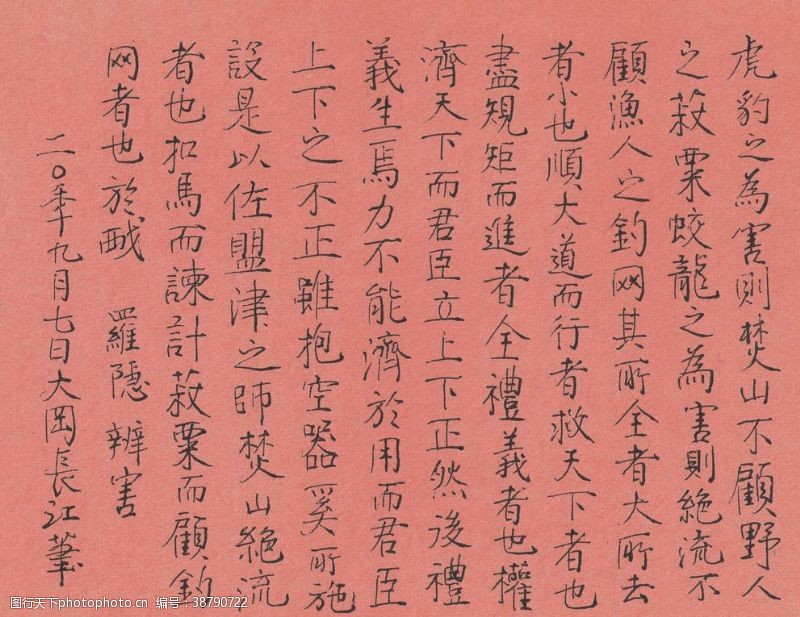 虎豹之為害則焚山不顧野人
之菽粟蛟龍之為害則絕流不
顧漁人之釣网其所全者大所去
者小也順大道而行者救天下者也
盡規矩而進者全禮義者也權
濟天下而君臣立上下正然後禮
義生焉力不能濟於用而君臣
上下之不正雖抱空器奚所施
設是以佐盟津之師焚山絕流
者也扣馬而諫計菽粟而顧釣
网者也於戲 羅隱辨害
二〇年十九月七日大岡長江筆
图行天下photophoto.cn 编号:38790722